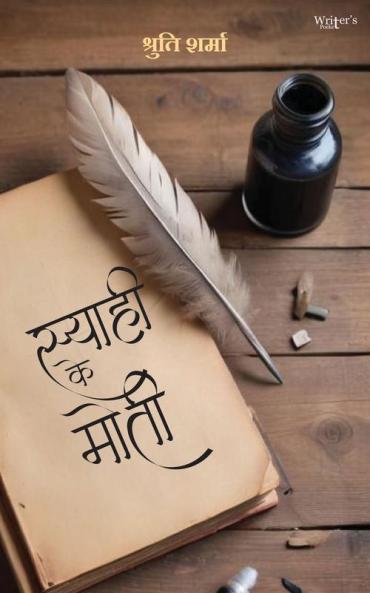 Writer's
Pocket
श्रुति शर्मा
स्याही
के
मोती